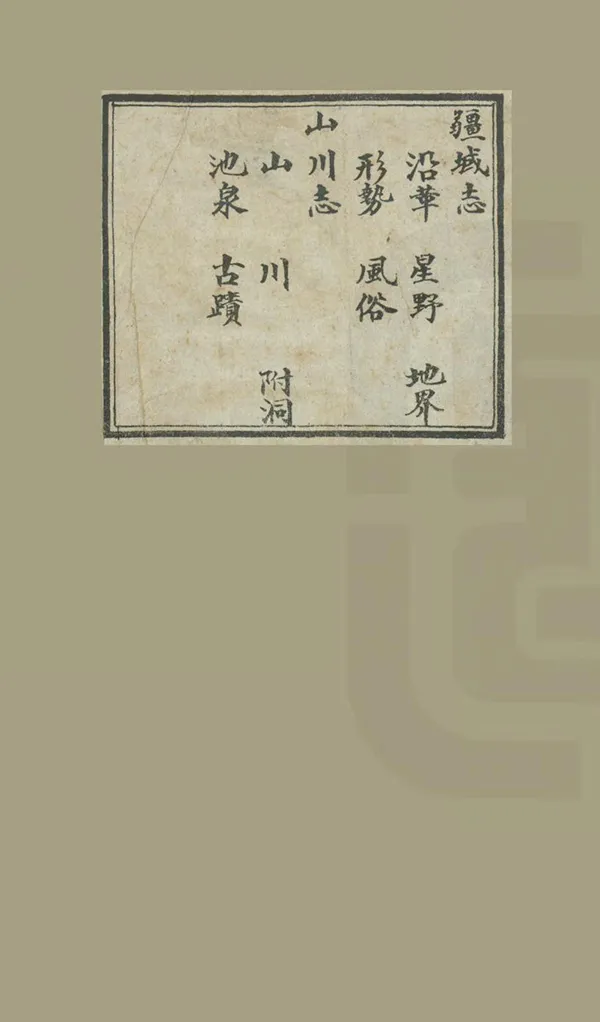 疆域志
沿革 星野 地界
形勢 風俗
山川志
山 川 附洞
池泉 古蹟